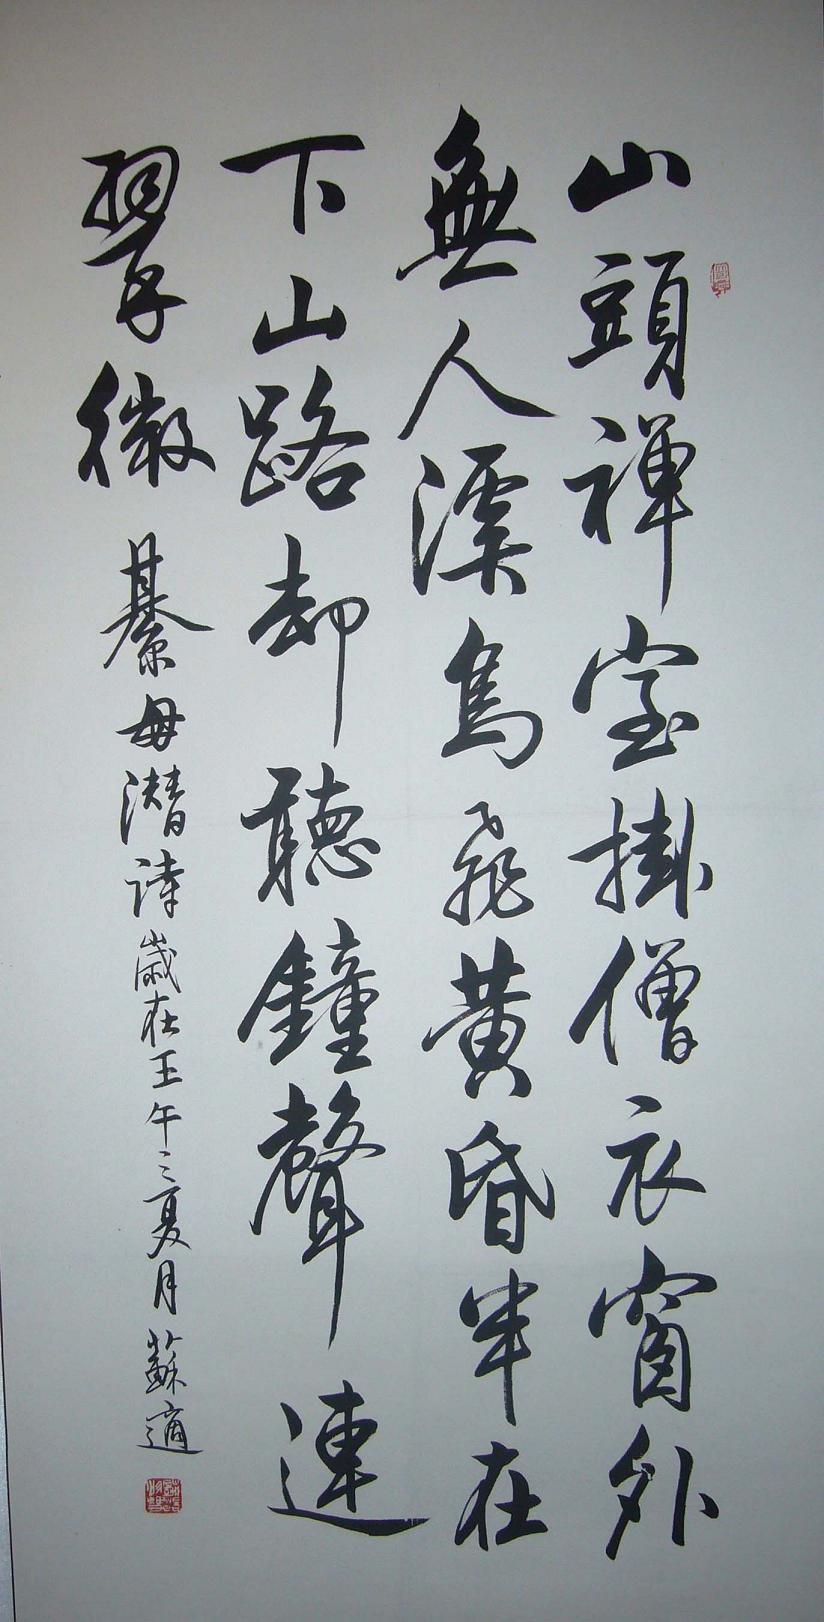 山頭禅室掛僧衣窗外
無人溪鳥飛黄昏半在
下山路却聽鐘聲連
翠微 綦毋潛詩歲在壬午之夏月蘇適